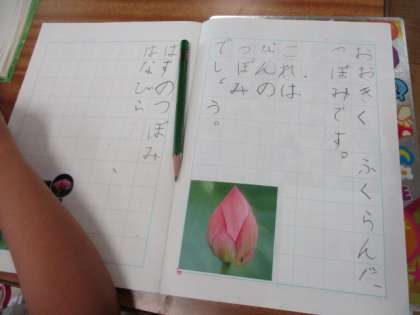 おおきく ふくらんだ
つぼみです。
これは
なんの
つぼみ
でしょう。
はすのつぼみ
はなびら